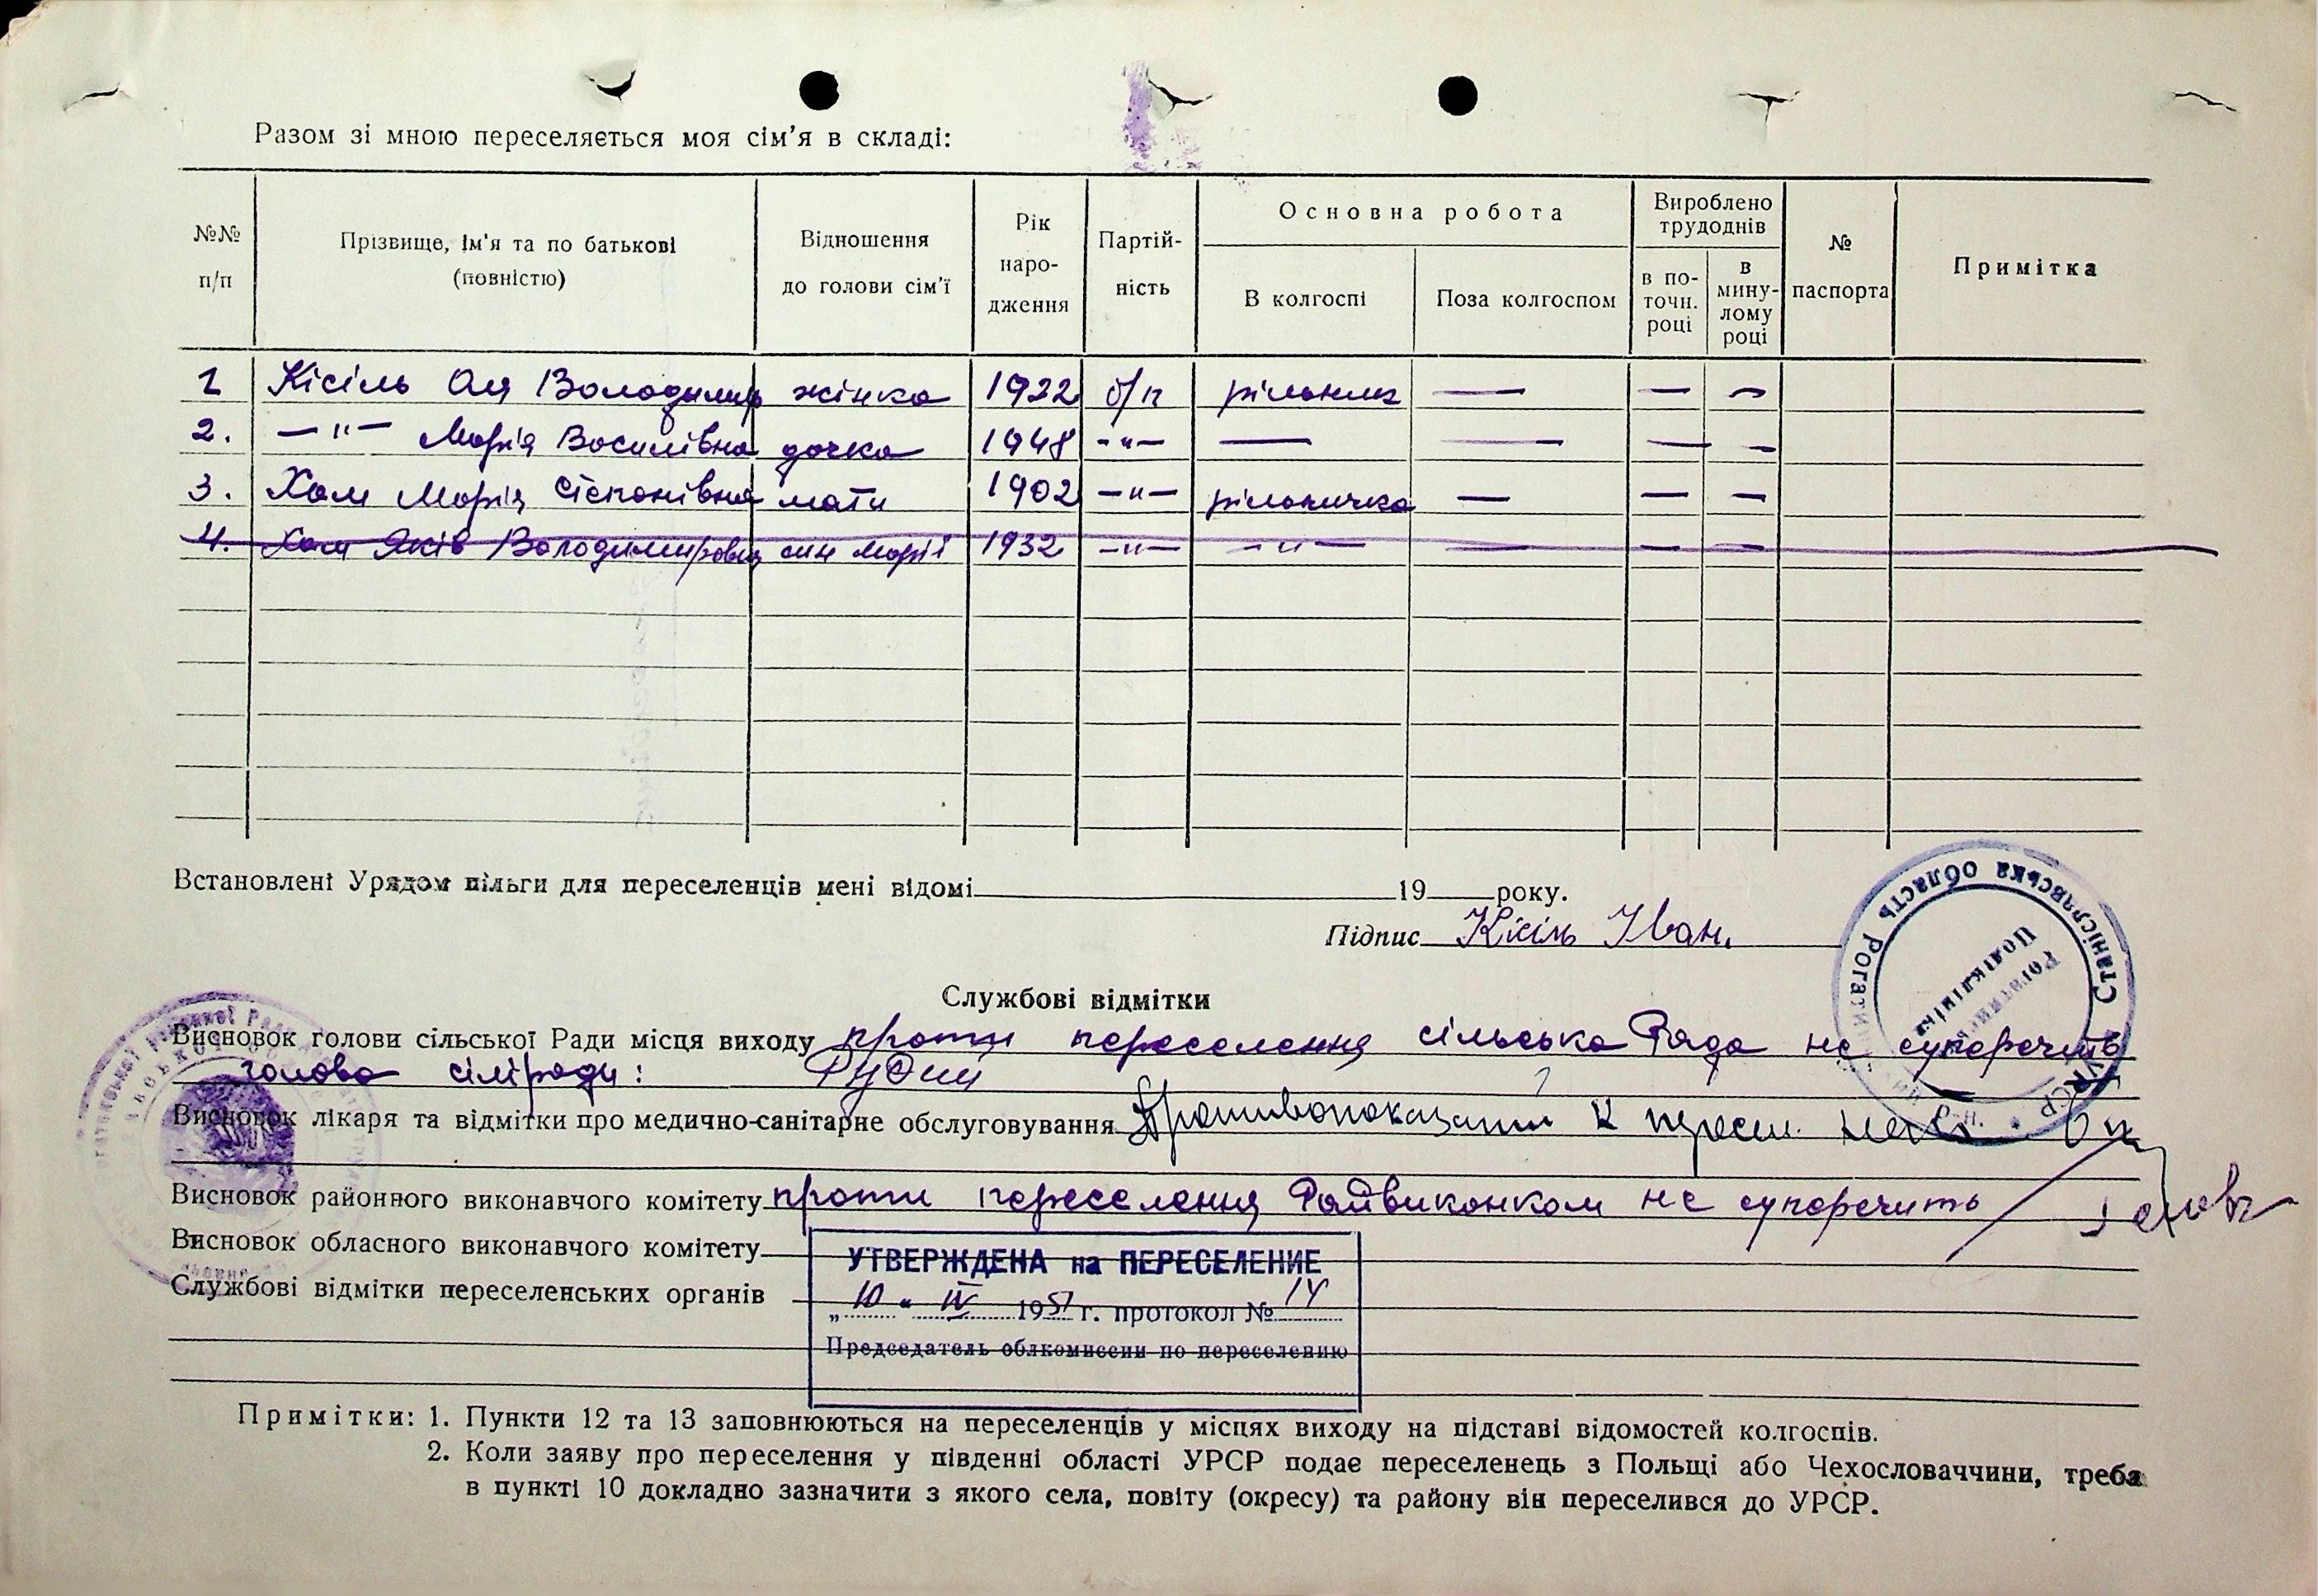 Разом зі мною переселяється моя сім'я в складі:
№№ п/п
Прізвище, ім'я та по батькові (повністю)
Відношення до голови сім'ї
Рік народження
Партійність
Основна робота
В колгоспі
Поза колгоспом
Вироблено трудоднів
в поточн. році
в минулому році
№ паспорта
Примітка
1 Кісіль Оля Володимир жінка 1922 б/п рільник — — —
2. —"— Марія Василівна дочка 1948 -"- — — — —
3. Хам Марія Степанівна мати 1902 —"— рільничка — — —
4. Хам Яків Володимирович син Марії 1932 —"— —"— — — —
Встановлені Урядом пільги для переселенців мені відомі 19 року.
Підпис Кісіль Іван.
Службові відмітки
Висновок голови сільської Ради місця виходу проти переселення сільська Рада не суперечить
голова сілЇради:
Висновок лікаря та відмітки про медично-санітарне обслуговування Противопоказаний к пересел. нет.
Висновок районного виконавчого комітету проти переселення Райвиконком не суперечить
Висновок обласного виконавчого комітету
УТВЕРЖДЕНА на ПЕРЕСЕЛЕНИЕ
Службові відмітки переселенських органів
„10" IV 1951 г. протокол № 14
Председатель облкомиссии по переселению
Станіславська область
Поліклініка
УРСР
Примітки: 1. Пункти 12 та 13 заповнюються на переселенців у місцях виходу на підставі відомостей колгоспів.
2. Коли заяву про переселення у південні області УРСР подає переселенець з Польщі або Чехословаччини, треба
в пункті 10 докладно зазначити з якого села, повіту (окресу) та району він переселився до УРСР.